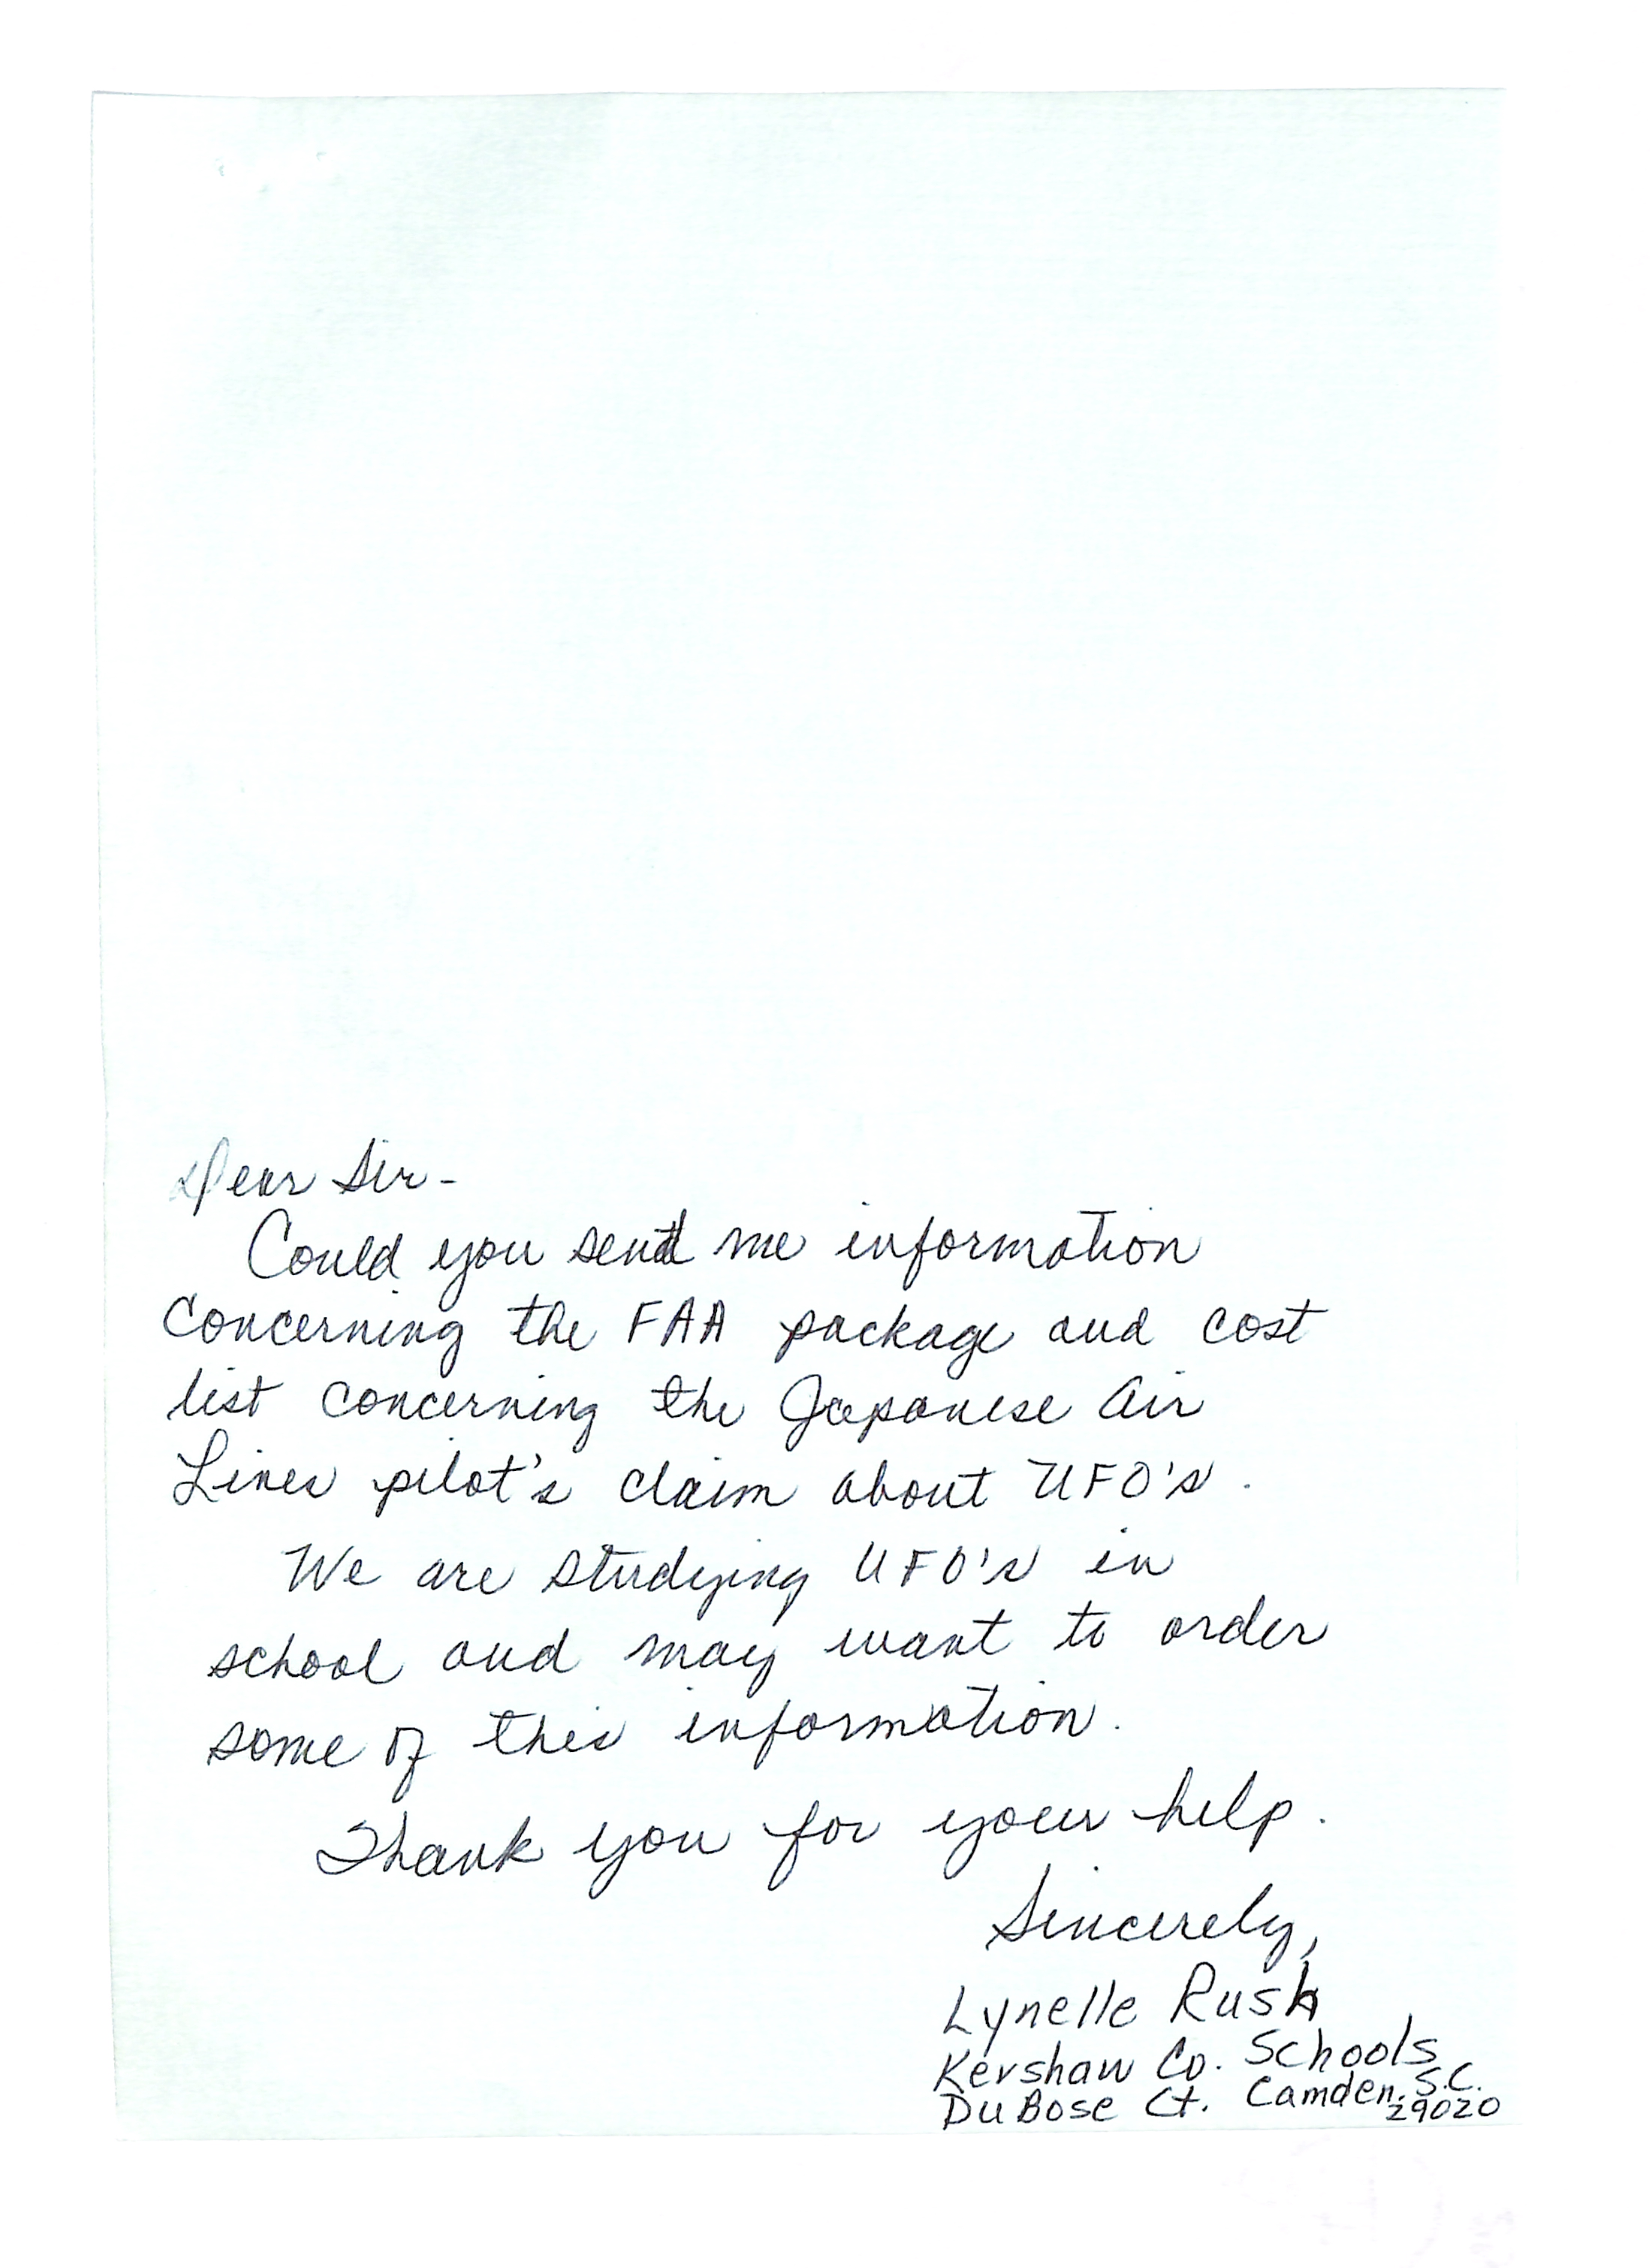 Dear Sir-
Could you send me information
concerning the FAA package and cost
list concerning the Japanese Air
Lines pilot's claim about UFO's.
We are studying UFO's in
school and may want to order
some of this information.
Thank you for your help.
Sincerely,
Lynelle Rush
Kershaw Co. Schools
DuBose Ct. Camden, S.C.
29020